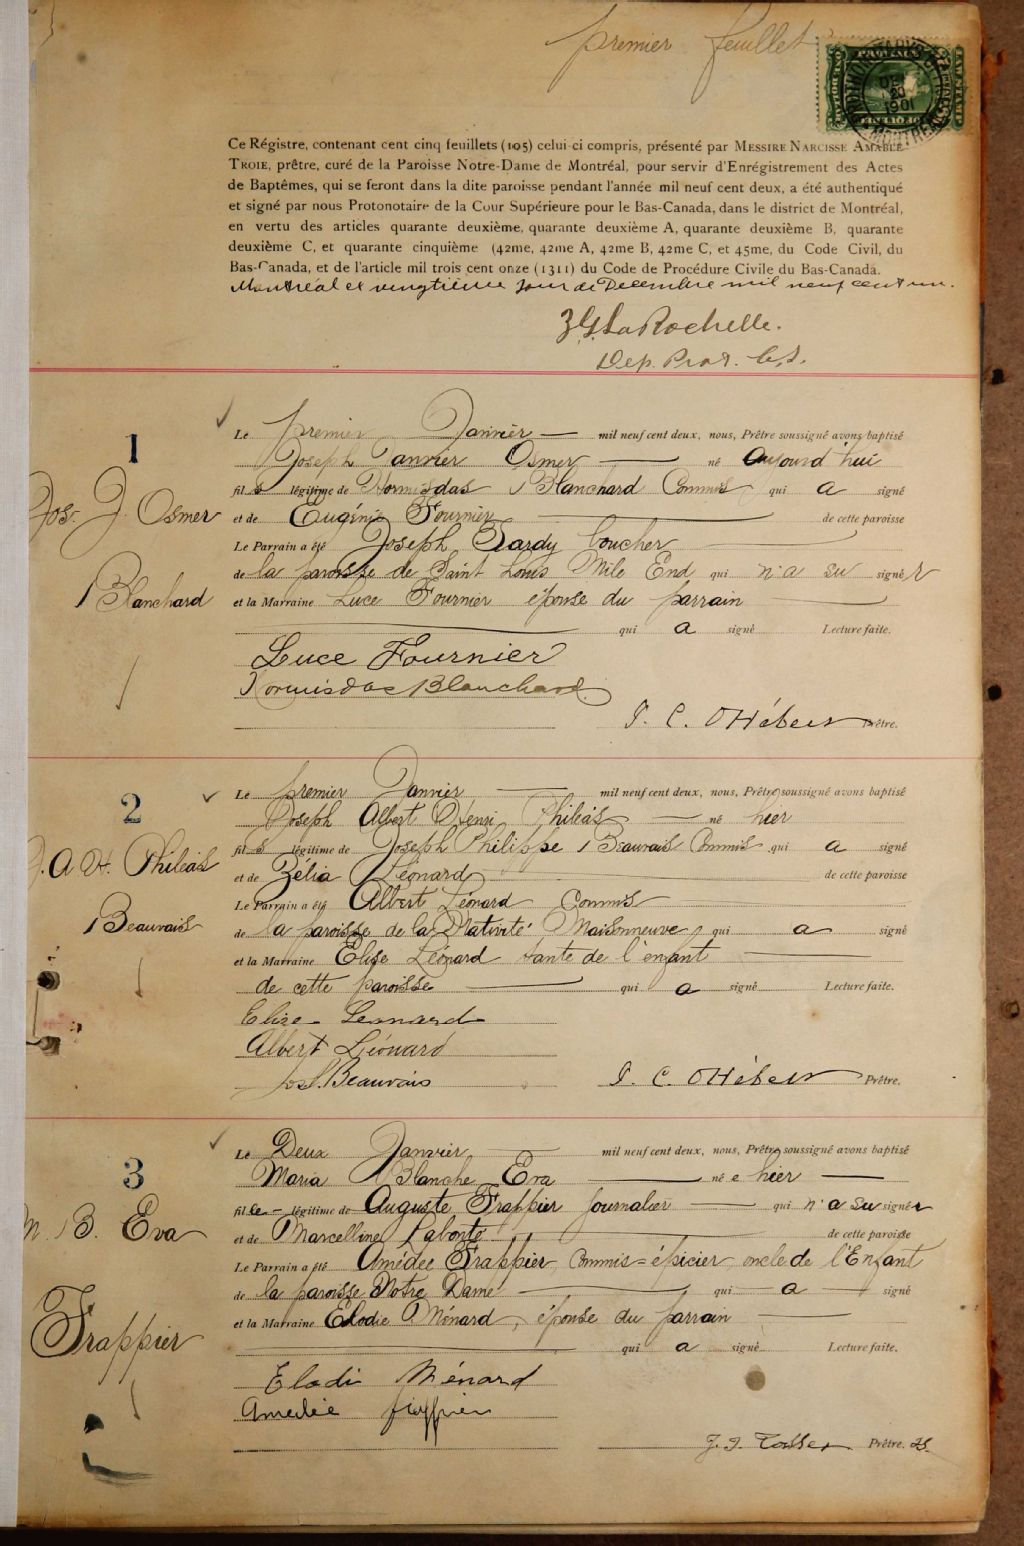 premier feuillet
DEC
20
1901
MONTREAL
Ce Régistre, contenant cent cinq feuillets (105) celui-ci compris, présenté par MESSIRE NARCISSE AMABLE
TROIE, prêtre, curé de la Paroisse Notre-Dame de Montréal, pour servir d'Enrégistrement des Actes
de Baptêmes, qui se feront dans la dite paroisse pendant l'année mil neuf cent deux, a été authentiqué
et signé par nous Protonotaire de la Cour Supérieure pour le Bas-Canada, dans le district de Montréal,
en vertu des articles quarante deuxième, quarante deuxième A, quarante deuxième B, quarante
deuxième C, et quarante cinquième (42me, 42me A, 42me B, 42me C, et 45me, du Code Civil, du
Bas-Canada, et de l'article mil trois cent onze (1311) du Code de Procédure Civile du Bas-Canada.
Montréal ce vingtième jour de Decembre mil neuf cent un.
LaRochelle.
Dep. Prot. C.S.
1
Jos. J. Osmer
Blanchard
Le premier Janvier — mil neuf cent deux, nous, Prêtre soussigné avons baptisé
Joseph Janvier Osmer — né aujourd'hui
fils légitime de Hormisdas Blanchard Commis qui a signé
et de Eugénie Fournier — de cette paroisse
Le Parrain a été Joseph Tardy boucher —
de la paroisse de Saint Louis Mile End qui n'a su signer
et la Marraine Luce Fournier épouse du parrain —
— qui a signé Lecture faite.
Luce Fournier
Hormisdas Blanchard
Prêtre.
2
J. A. H. Philéas
Beauvais
Le premier Janvier — mil neuf cent deux, nous, Prêtre soussigné avons baptisé
Joseph Albert Henri Philéas — né hier
fils légitime de Joseph Philippe Beauvais Commis qui a signé
et de Zélia Léonard — de cette paroisse
Le Parrain a été Albert Léonard Commis —
de la paroisse de la Nativité Maisonneuve qui a signé
et la Marraine Elise Léonard tante de l'enfant —
de cette paroisse — qui a signé Lecture faite.
Elize Leonard
Albert Léonard
Jos. P. Beauvais
Prêtre.
3
M. B. Eva
Frappier
Le Deux Janvier — mil neuf cent deux, nous, Prêtre soussigné avons baptisé
Maria Blanche Eva — née hier —
fille — légitime de Auguste Frappier journalier — qui n'a su signer
et de Marcelline Labonté — de cette paroisse
Le Parrain a été Amédée Frappier, Commis=épicier, oncle de l'Enfant
de la paroisse Notre Dame — qui a — signé
et la Marraine Elodie Ménard, épouse du parrain —
— qui a signé Lecture faite.
Elodi Ménard
Amedée frappier
Prêtre.